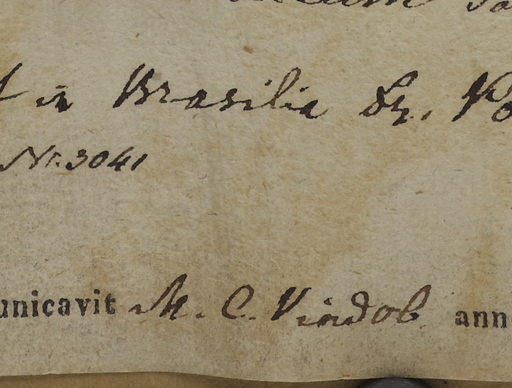 t in Brasilia Dr. Po
Nr. 3041
unicavit M. C. Vindob. ann